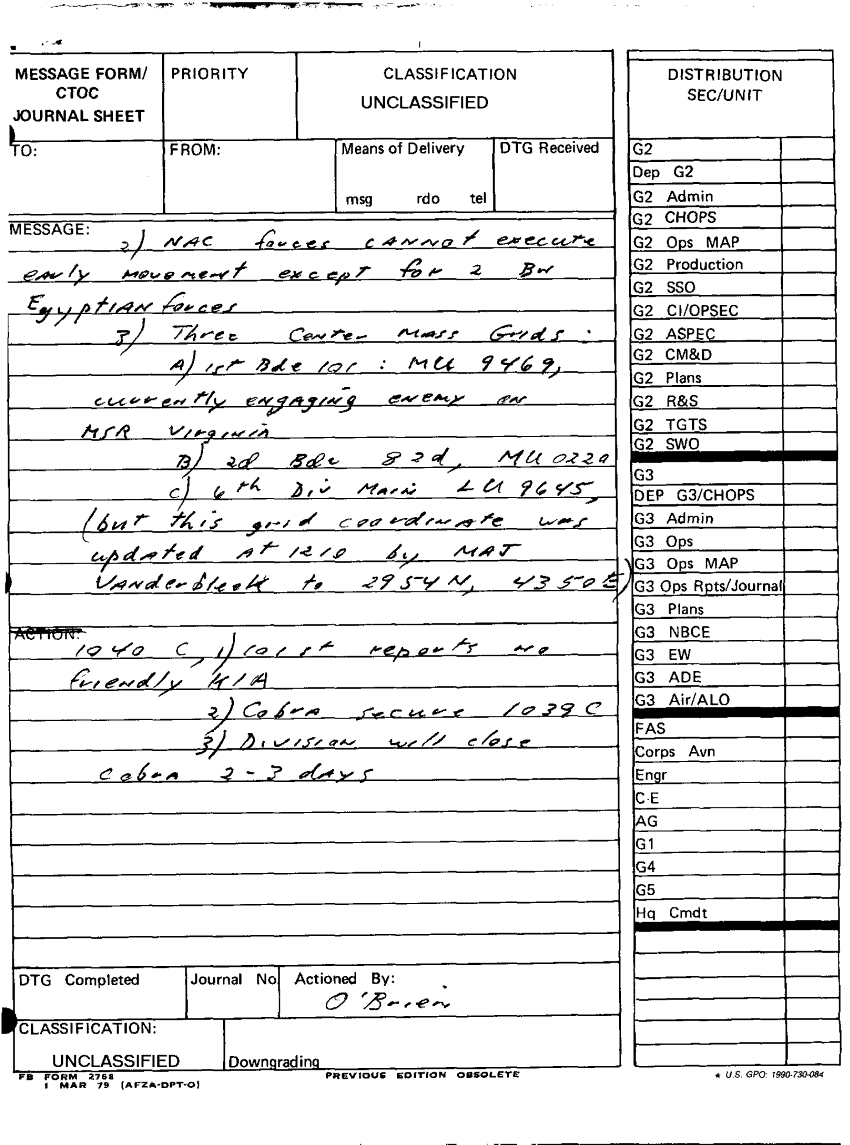 MESSAGE FORM/
CTOC
JOURNAL SHEET
PRIORITY
CLASSIFICATION
UNCLASSIFIED
TO:
FROM:
Means of Delivery
msg rdo tel
DTG Received
MESSAGE:
2) NAC forces cannot execute
early movement except for 2 Bn
Egyptian forces
3) Three Center Mass Grids:
A) 1st Bde 101: MU 9469,
currently engaging enemy on
MSR Virginia
B) 2d Bde 82d, MU 0220
C) 6th Div Main LU 9645,
(but this grid coordinate was
updated at 1210 by MAJ
Vanderbleek to 2954N, 4350E)
ACTION:
1040 C, 1) 101st reports no
friendly KIA
2) Cobra secure 1039C
3) Division will close
Cobra 2-3 days
DTG Completed
Journal No
Actioned By:
O'Brien
CLASSIFICATION:
UNCLASSIFIED
Downgrading
FB FORM 2768
1 MAR 79 (AFZA-DPT-O)
PREVIOUS EDITION OBSOLETE
DISTRIBUTION
SEC/UNIT
G2
Dep G2
G2 Admin
G2 CHOPS
G2 Ops MAP
G2 Production
G2 SSO
G2 CI/OPSEC
G2 ASPEC
G2 CM&D
G2 Plans
G2 R&S
G2 TGTS
G2 SWO
G3
DEP G3/CHOPS
G3 Admin
G3 Ops
G3 Ops MAP
G3 Ops Rpts/Journal
G3 Plans
G3 NBCE
G3 EW
G3 ADE
G3 Air/ALO
FAS
Corps Avn
Engr
C-E
AG
G1
G4
G5
Hq Cmdt
★ U.S. GPO: 1990-730-084